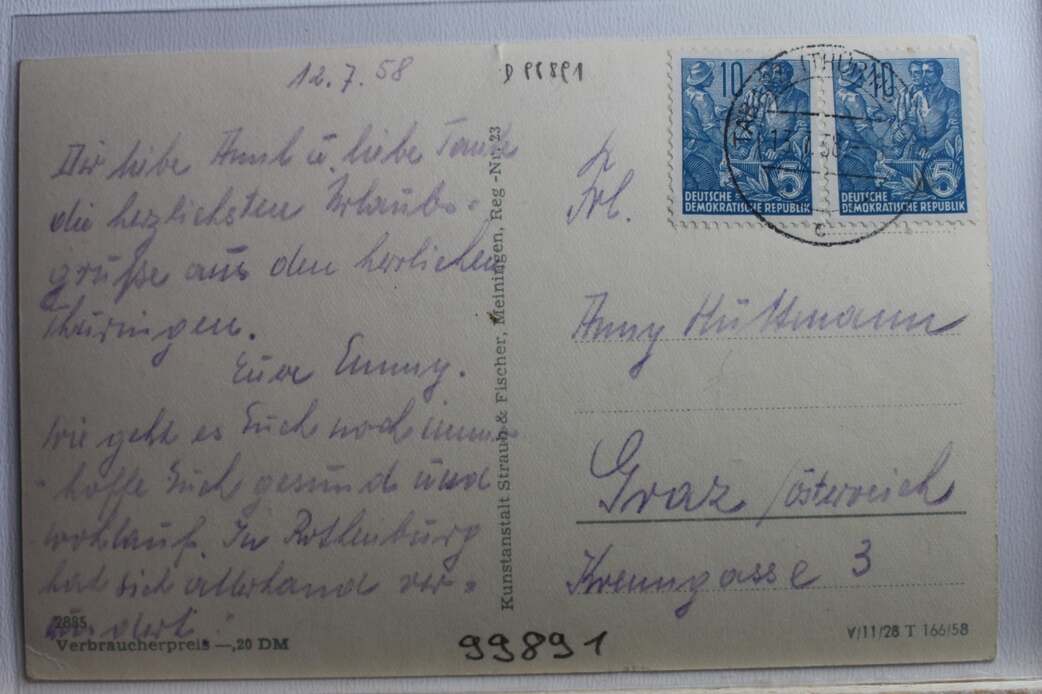 12.7.58
D 99891
Dir liebe Annl u. liebe Tante
die herzlichsten Urlaubs-
grüße aus den herrlichen
Thüringen.
Eure Emmy.
Wie geht es Euch noch immer
hoffe Euch gesund und
wohlauf. In Rothenburg
hat sich allerhand ver-
ändert!
2885
Verbraucherpreis —,20 DM
Kunstanstalt Straub & Fischer, Meiningen, Reg.-Nr. 23
99891
10
5
DEUTSCHE
DEMOKRATISCHE REPUBLIK
10
5
DEUTSCHE
DEMOKRATISCHE REPUBLIK
(THÜR)
c
Frl.
Anny Hüttmann
Graz /Österreich
Krenngasse 3
V/11/28 T 166/58